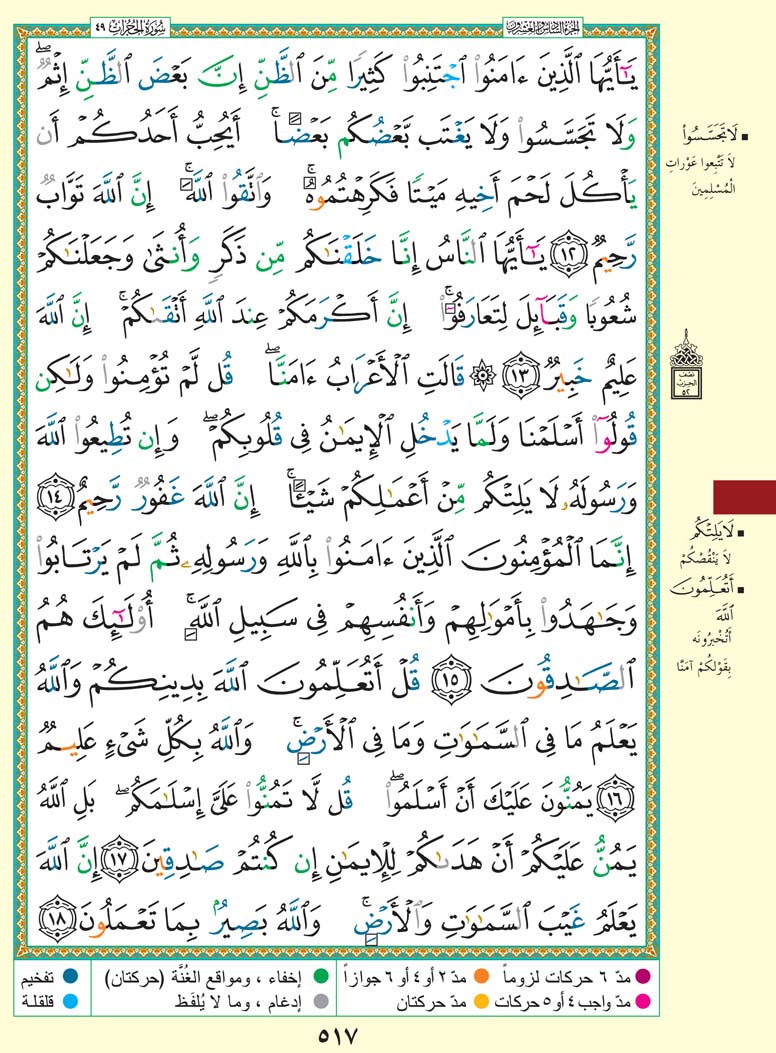 الجزء السادس والعشرون
سُورَةُ الحُجُرَات ٤٩
يَـٰٓأَيُّهَا ٱلَّذِينَ ءَامَنُوا۟ ٱجْتَنِبُوا۟ كَثِيرًا مِّنَ ٱلظَّنِّ إِنَّ بَعْضَ ٱلظَّنِّ إِثْمٌ ۖ
وَلَا تَجَسَّسُوا۟ وَلَا يَغْتَب بَّعْضُكُم بَعْضًا ۚ أَيُحِبُّ أَحَدُكُمْ أَن
يَأْكُلَ لَحْمَ أَخِيهِ مَيْتًا فَكَرِهْتُمُوهُ ۚ وَٱتَّقُوا۟ ٱللَّهَ ۚ إِنَّ ٱللَّهَ تَوَّابٌ
رَّحِيمٌ ١٢ يَـٰٓأَيُّهَا ٱلنَّاسُ إِنَّا خَلَقْنَـٰكُم مِّن ذَكَرٍ وَأُنثَىٰ وَجَعَلْنَـٰكُمْ
شُعُوبًا وَقَبَآئِلَ لِتَعَارَفُوٓا۟ ۚ إِنَّ أَكْرَمَكُمْ عِندَ ٱللَّهِ أَتْقَىٰكُمْ ۚ إِنَّ ٱللَّهَ
عَلِيمٌ خَبِيرٌ ١٣ ۞ قَالَتِ ٱلْأَعْرَابُ ءَامَنَّا ۖ قُل لَّمْ تُؤْمِنُوا۟ وَلَـٰكِن
قُولُوٓا۟ أَسْلَمْنَا وَلَمَّا يَدْخُلِ ٱلْإِيمَـٰنُ فِى قُلُوبِكُمْ ۖ وَإِن تُطِيعُوا۟ ٱللَّهَ
وَرَسُولَهُۥ لَا يَلِتْكُم مِّنْ أَعْمَـٰلِكُمْ شَيْـًٔا ۚ إِنَّ ٱللَّهَ غَفُورٌ رَّحِيمٌ ١٤
إِنَّمَا ٱلْمُؤْمِنُونَ ٱلَّذِينَ ءَامَنُوا۟ بِٱللَّهِ وَرَسُولِهِۦ ثُمَّ لَمْ يَرْتَابُوا۟
وَجَـٰهَدُوا۟ بِأَمْوَٰلِهِمْ وَأَنفُسِهِمْ فِى سَبِيلِ ٱللَّهِ ۚ أُو۟لَـٰٓئِكَ هُمُ
ٱلصَّـٰدِقُونَ ١٥ قُلْ أَتُعَلِّمُونَ ٱللَّهَ بِدِينِكُمْ وَٱللَّهُ
يَعْلَمُ مَا فِى ٱلسَّمَـٰوَٰتِ وَمَا فِى ٱلْأَرْضِ ۚ وَٱللَّهُ بِكُلِّ شَىْءٍ عَلِيمٌ
١٦ يَمُنُّونَ عَلَيْكَ أَنْ أَسْلَمُوا۟ ۖ قُل لَّا تَمُنُّوا۟ عَلَىَّ إِسْلَـٰمَكُم ۖ بَلِ ٱللَّهُ
يَمُنُّ عَلَيْكُمْ أَنْ هَدَىٰكُمْ لِلْإِيمَـٰنِ إِن كُنتُمْ صَـٰدِقِينَ ١٧ إِنَّ ٱللَّهَ
يَعْلَمُ غَيْبَ ٱلسَّمَـٰوَٰتِ وَٱلْأَرْضِ ۚ وَٱللَّهُ بَصِيرٌۢ بِمَا تَعْمَلُونَ ١٨
▪ لَا تَجَسَّسُوا۟
لَا تَتَّبِعوا عَوْراتِ
المُسْلِمِينَ
نصف
الحزب
٥٢
▪ لَا يَلِتْكُم
لَا يَنْقُصْكُمْ
▪ أَتُعَلِّمُونَ
ٱللَّهَ
أَتُخْبِرُونَه
بِقَوْلِكُمْ آمَنَّا
مدّ ٦ حركات لزوماً
مدّ ٢ أو ٤ أو ٦ جوازاً
إخفاء ، ومواقع الغُنَّة (حركتان)
تفخيم
مدّ واجب ٤ أو ٥ حركات
مدّ حركتان
إدغام ، وما لا يُلفَظ
قلقلة
٥١٧